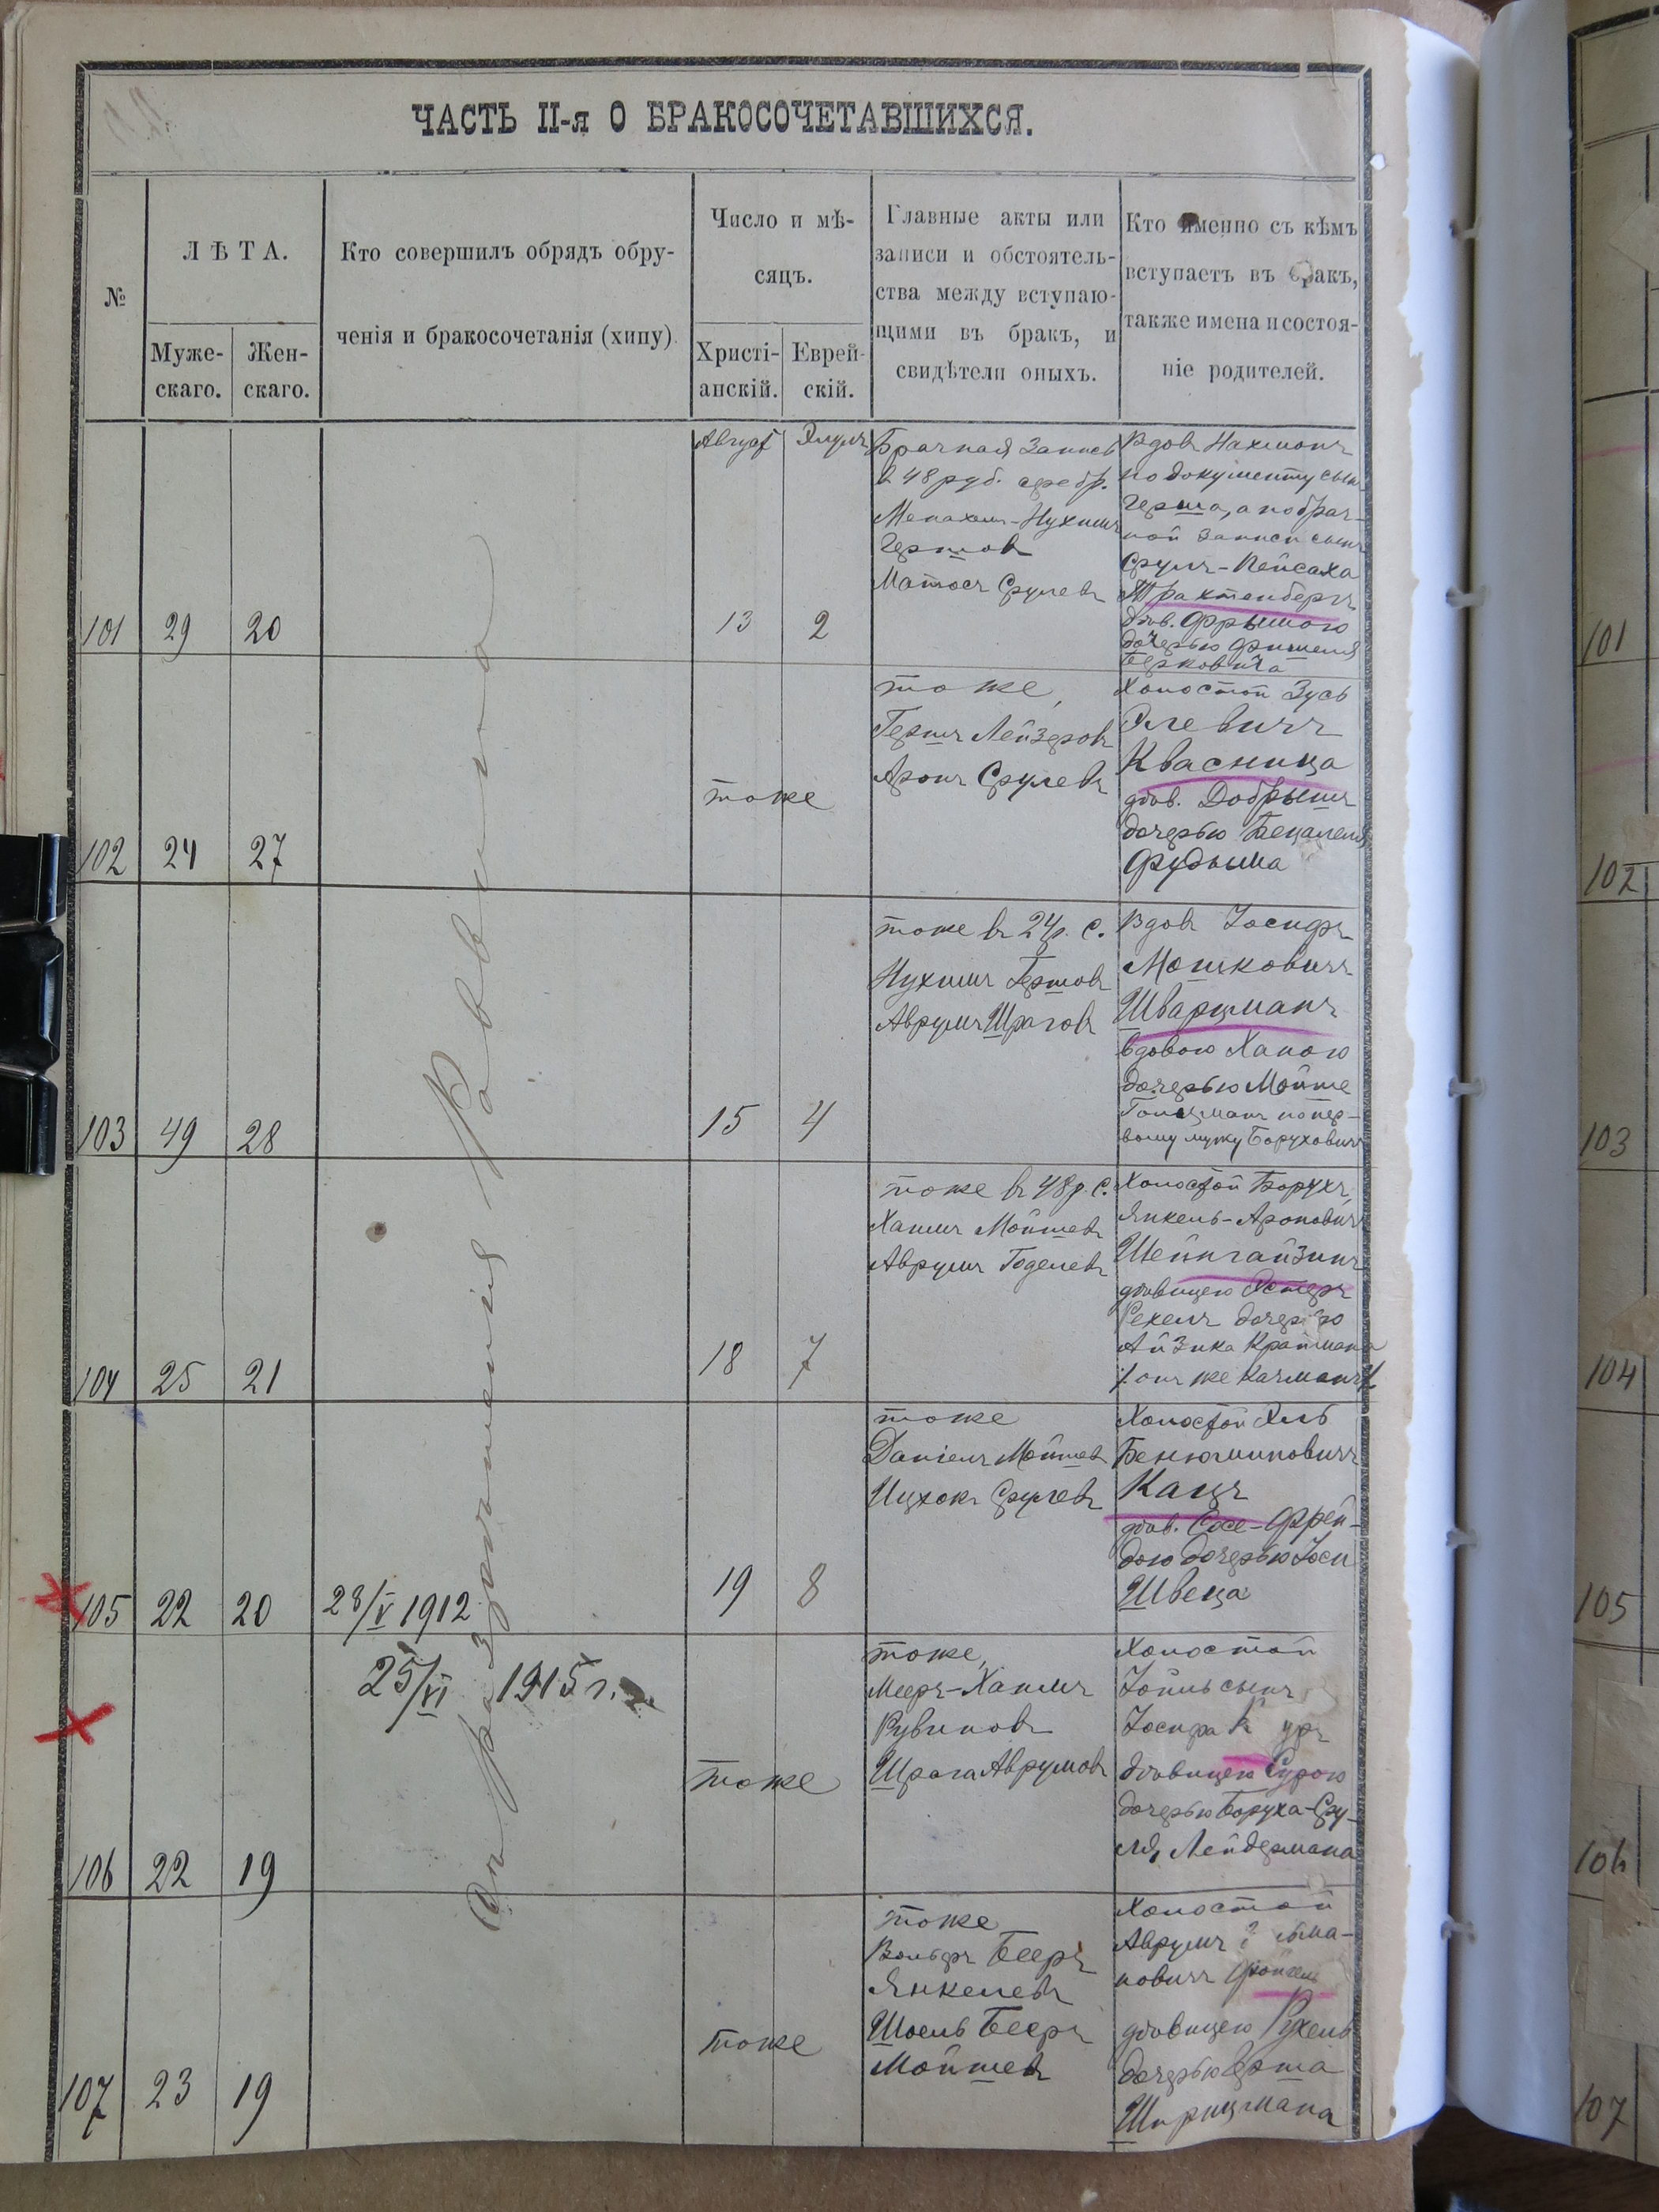 ЧАСТЬ II-я О БРАКОСОЧЕТАВШИХСЯ.
№
ЛѢТА.
Муже-
скаго.
Жен-
скаго.
Кто совершилъ обрядъ обру-
ченія и бракосочетанія (хипу)
Число и мѣ-
сяцъ.
Христі-
анскій.
Еврей-
скій.
Главные акты или
записи и обстоятель-
ства между вступаю-
щими въ бракъ, и
свидѣтели оныхъ.
Кто именно съ кѣмъ
вступаетъ въ бракъ,
также имена и состоя-
ніе родителей.
Съ разрѣшенія Раввина
101 29 20
Август Элулъ
13 2
Брачная запись
въ 48 руб. сереб.
Менахемъ-Нухимъ
Гершовъ
Матосъ Срулевъ
Вдовъ Нахманъ
по документу сынъ
Герша, а по брач-
ной записи сынъ
Сруль-Пейсаха
Трактенбергъ
дѣв. Фрымою
дочерью Фишеля
Берковича
102 24 27
тоже
тоже,
Гершъ Лейзеровъ
Аронъ Срулевъ
Холостой Зусь
Элевичъ
Квасница
дѣв. Добрышъ
дочерью Бецалеля
Фудыма
103 49 28
15 4
тоже въ 24 р. с.
Нухимъ Гершовъ
Аврумъ Шраговъ
Вдовъ Іосифъ
Мошковичъ
Шварцманъ
вдовою Ханою
дочерью Мойше
Гольцманъ по пер-
вому мужу Боруховичъ
104 25 21
18 7
тоже въ 48 р. с.
Хаимъ Мойшевъ
Аврумъ Годелевъ
Холостой Борухъ
Янкель-Ароновичъ
Шейнгайзинъ
дѣвицею Эстеръ
Рехель дочерью
Айзика Краймана
/: онъ же Качманъ :/
105 22 20
28/V 1912
19 8
тоже
Даніелъ Мойшевъ
Ицхокъ Срулевъ
Холостой Эль
Бенюминовичъ
Кацъ
дѣв. Сосе-Фрей-
дою дочерью Іоси
Швеца
106 22 19
25/VI 1915 г.
тоже
тоже,
Мееръ-Хаимъ
Рувиновъ
Шрага Аврумовъ
Холостой
Іойль сынъ
Іосифа
дѣвицею Сурою
дочерью Боруха-Сру-
ля Лейдермана
107 23 19
тоже
тоже
Вольфъ Бееръ
Янкелевъ
Шоель Бееръ
Мойшевъ
Холостой
Аврумъ
новичъ
дѣвицею Рухель
дочерью Герша
Ширицмана
101
102
103
104
105
106
107